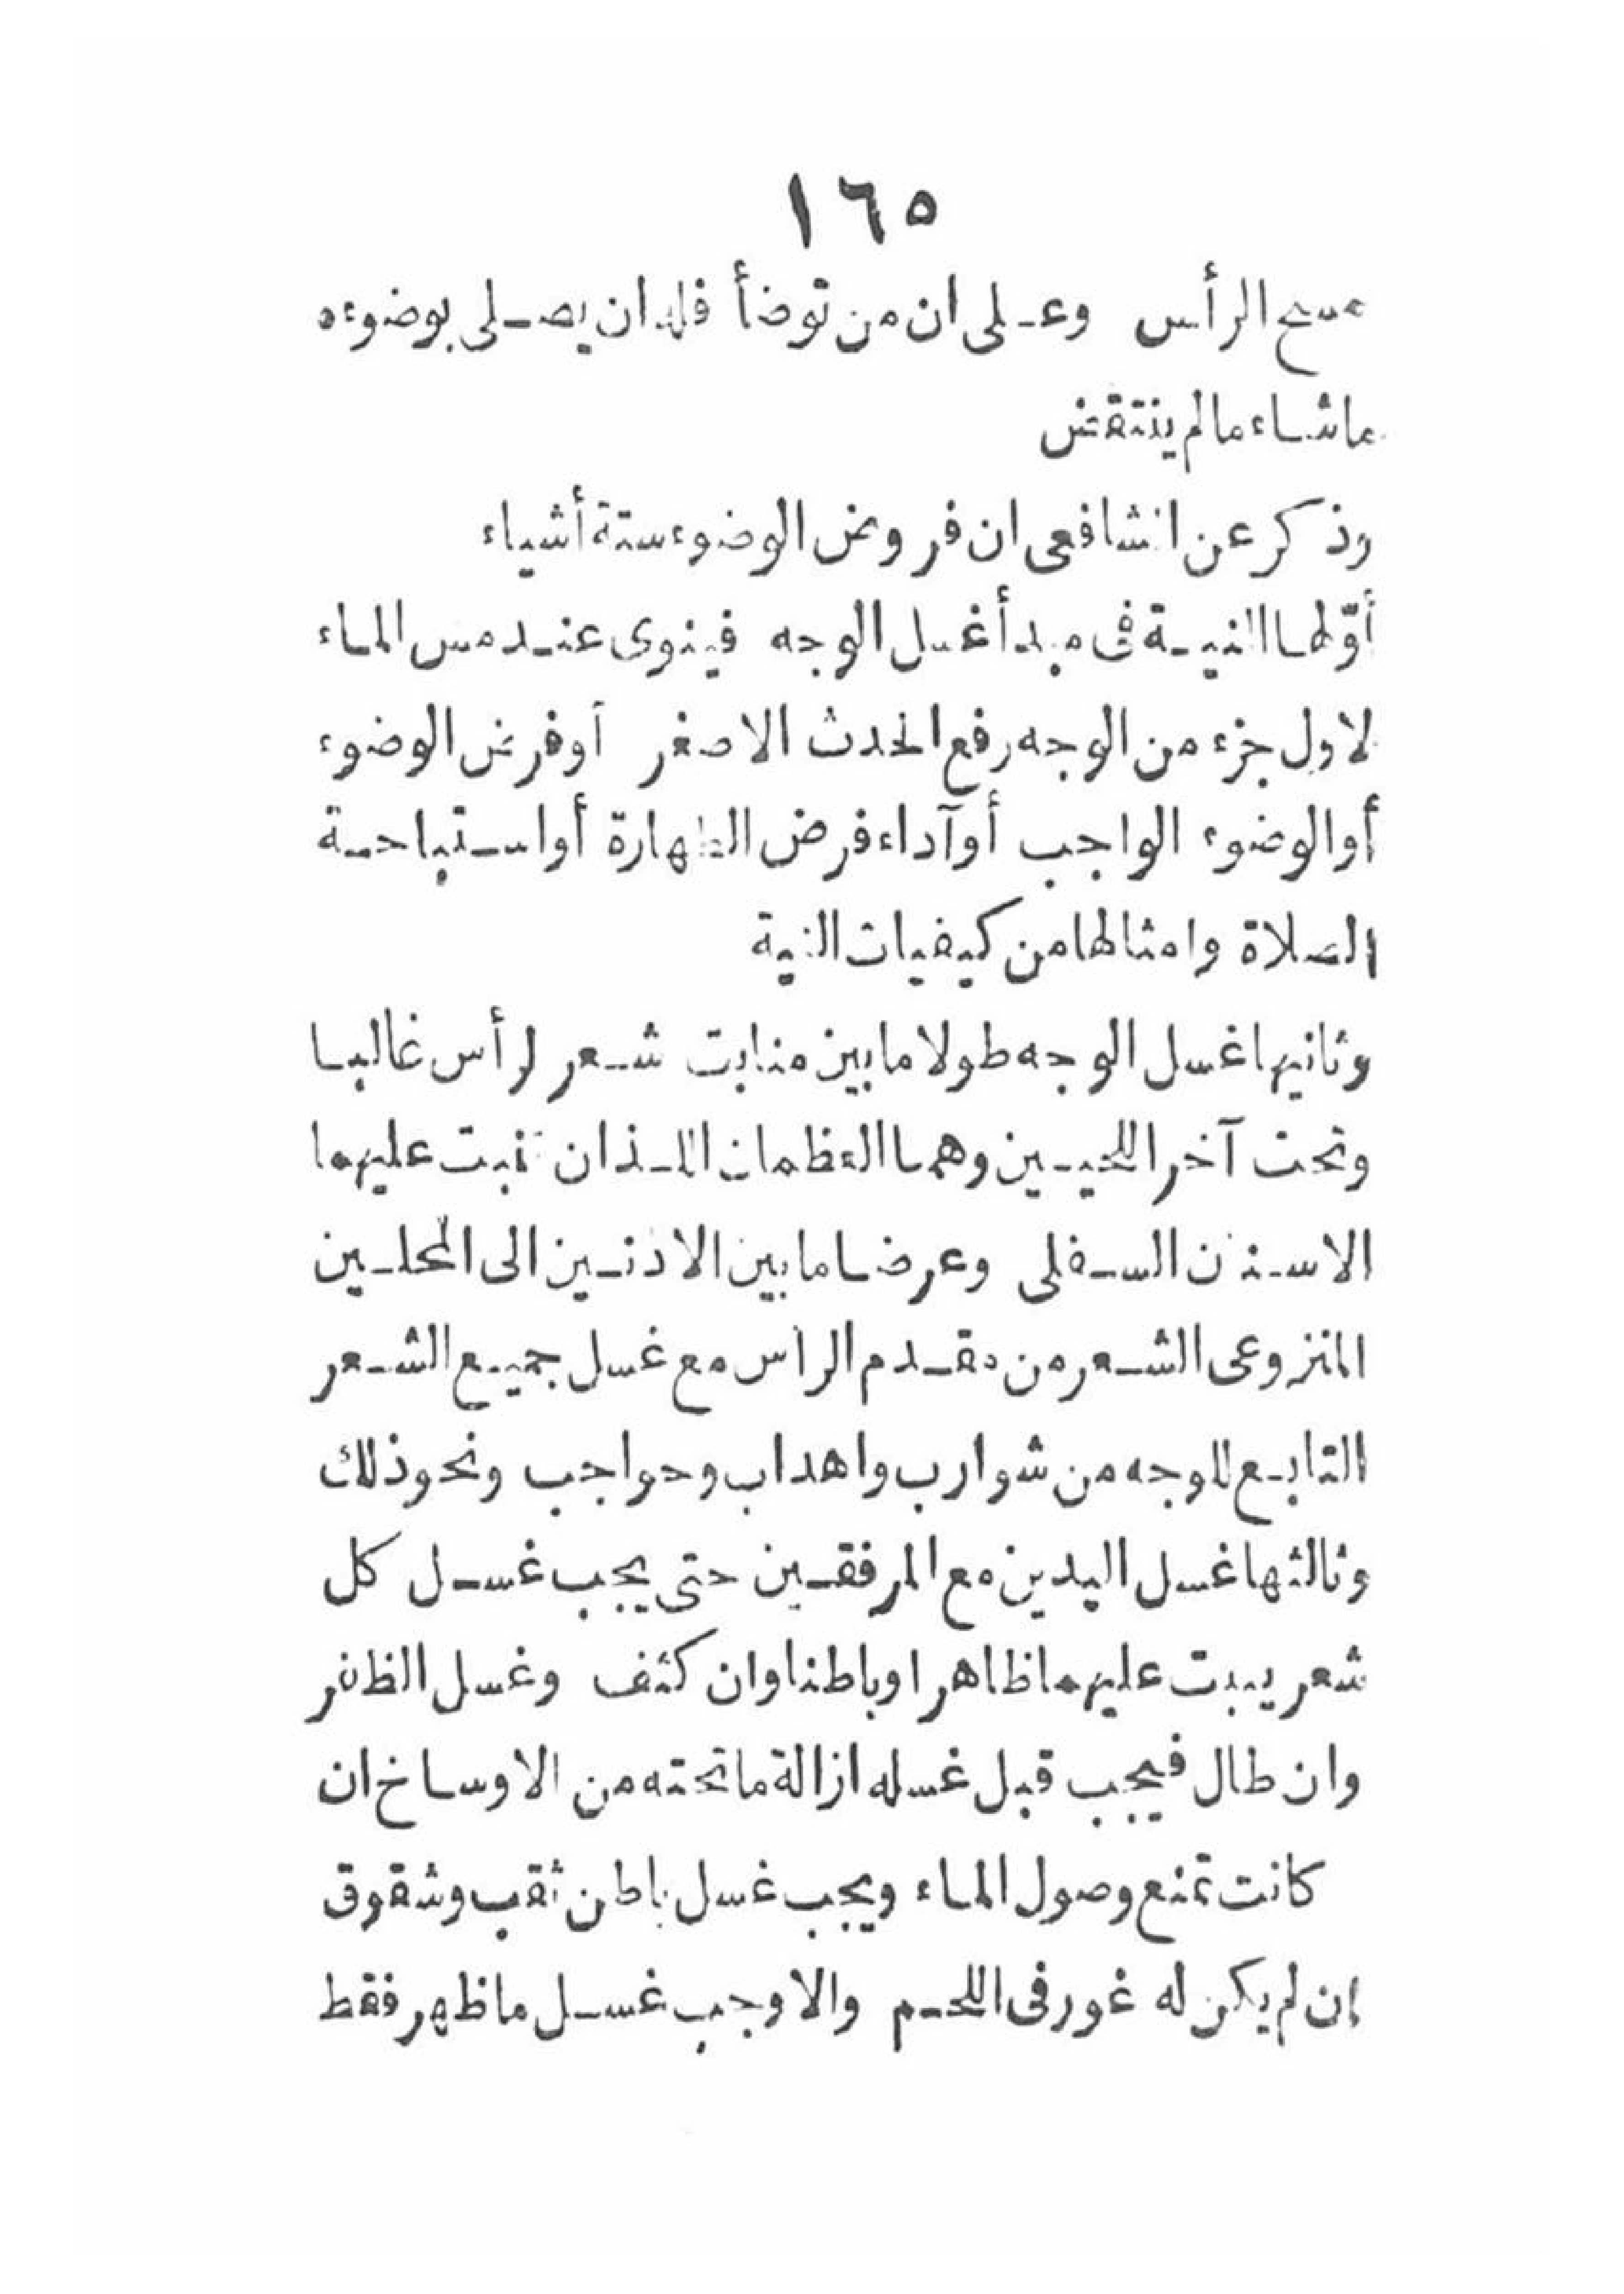 ١٦٥
مسح الرأس وعلى ان من توضأ فله ان يصلى بوضوءه
ماشاء مالم ينتقض
وذكر عن الشافعى ان فروض الوضوء ستة أشياء
أوّلها النية فى مبدأ غسل الوجه فينوى عند مس الماء
لاول جزء من الوجه رفع الحدث الاصغر أوفرض الوضوء
أوالوضوء الواجب أوآداء فرض الطهارة أواستباحة
الصلاة وامثالها من كيفيات النية
وثانيها غسل الوجه طولا مابين منابت شعر لرأس غالبا
وتحت آخر اللحيين وهما العظمان اللذان تنبت عليهما
الاسنان السفلى وعرضا مابين الاذنين الى المحلين
المنزوعى الشعر من مقدم الرأس مع غسل جميع الشعر
التابع للوجه من شوارب واهداب وحواجب ونحو ذلك
وثالثها غسل اليدين مع المرفقين حتى يجب غسل كل
شعر ينبت عليهما ظاهرا وباطنا وان كثف وغسل الظفر
وان طال فيجب قبل غسله ازالة ماتحته من الاوساخ ان
كانت تمنع وصول الماء ويجب غسل باطن ثقب وشقوق
إن لم يكن له غور فى اللحم والا وجب غسل ماظهر فقط